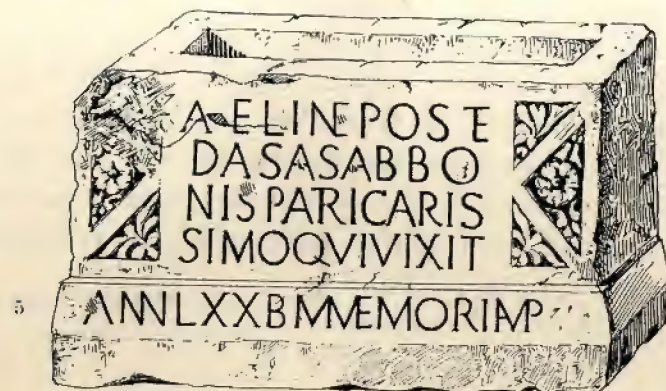 AELINEPOSTE
DASASABBO
NISPATRICARIS
SIMOQVIVIXIT
5
ANNLXXBMMEMORIAMP